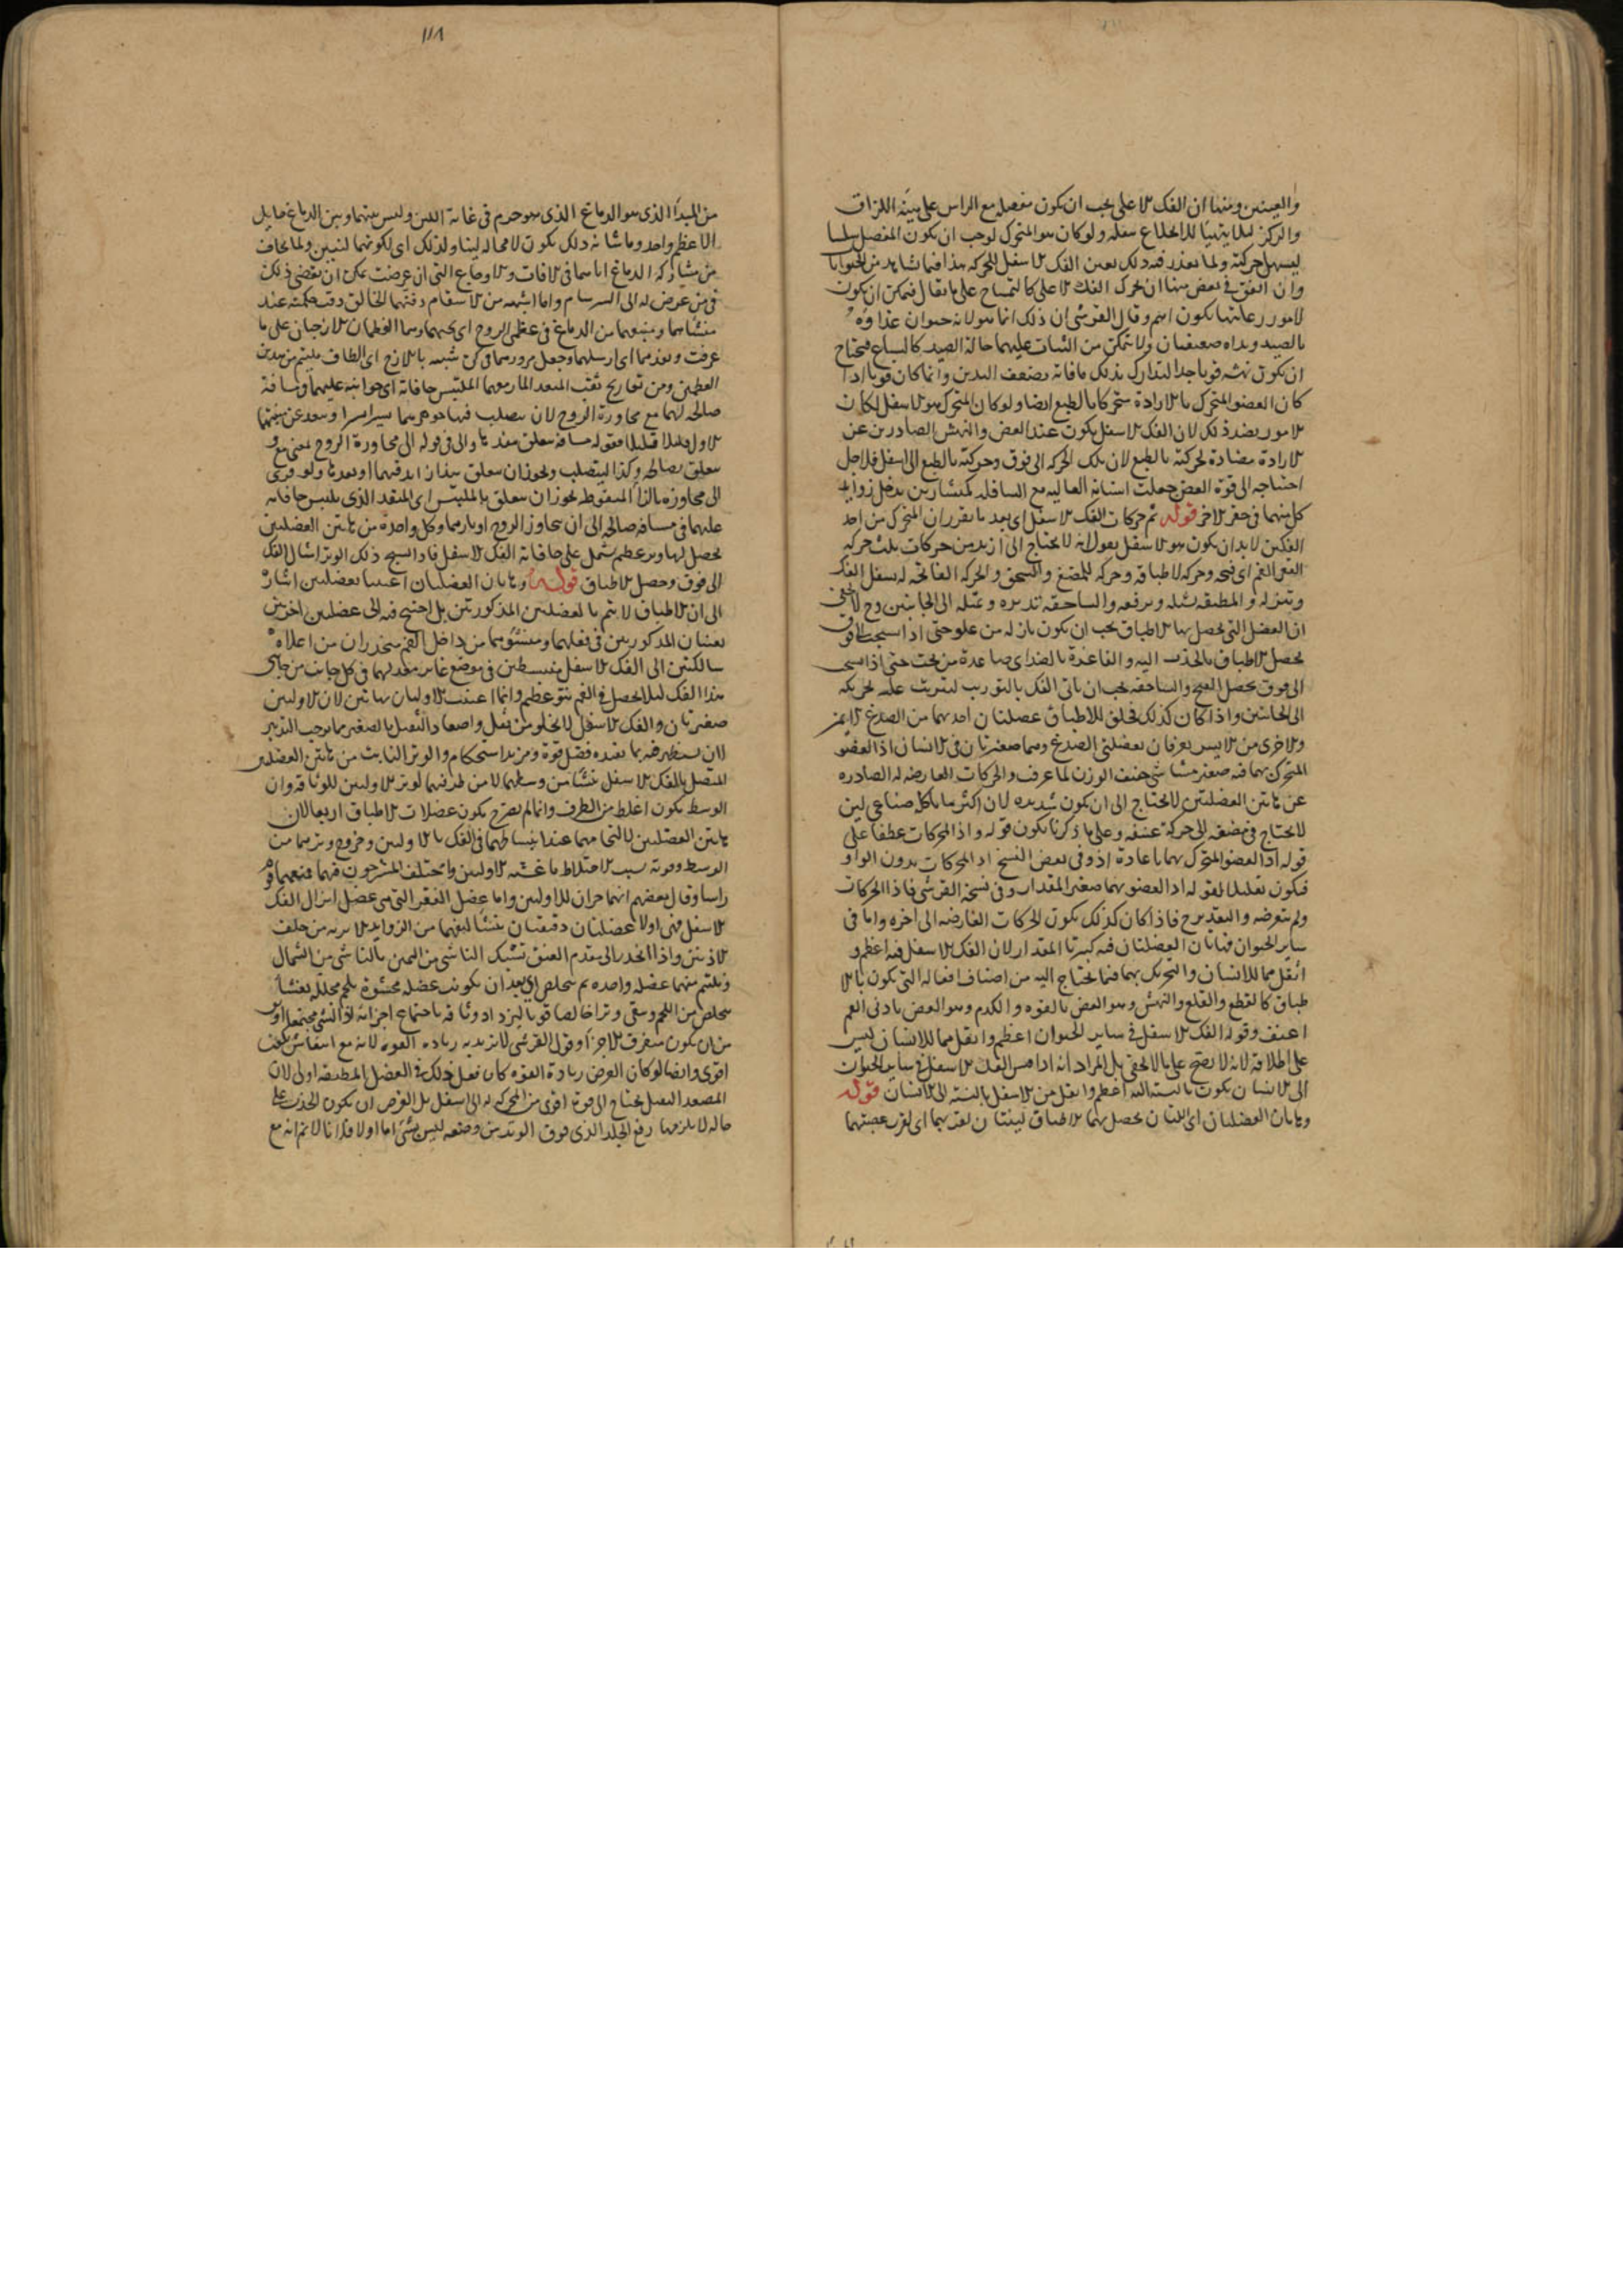 والعينين ومنها ان الفك الاعلى يجب ان يكون مفصله مع الراس على هيئة اللزاق
والركز ليلا يتهيا للانخلاع بثقله ولو كان هو المتحرك لوجب ان يكون المفصل سلسا
ليسهل حركته ولما تعذر فيه ذلك تعين الفك الاسفل للحركة هذا فيما نشاهد من الحيوانات
وان اتفق في بعض منها ان تحرك الفك الاعلى كالتمساح على ما يقال فيمكن ان يكون
لامور رعايتها يكون اهم وقال القرشي ان ذلك انما هو لانه حيوان غذاؤه
بالصيد ويداه ضعيفتان ولا يتمكن من الثبات عليهما حالة الصيد كالسباع فيحتاج
ان يكون نهشه قويا جدا ليتدارك بذلك ما فاته بضعف اليدين وانما كان قويا اذا
كان العضو المتحرك بالارادة متحركا بالطبع ايضا ولو كان المتحرك هو الاسفل لكان
الامر بضد ذلك لان الفك الاسفل يكون عند العض والنهش الصادرين عن
الارادة مضادة لحركته بالطبع لان تلك الحركة الى فوق وحركته بالطبع الى اسفل فلاجل
احتياجه الى قوة العض جعلت اسنانه العالية مع السافلة كمنشارين يدخل زوايا
كل منهما في حفر الاخر قوله ثم حركات الفك الاسفل اى بعد ما تقرر ان المتحرك من احد
الفكين لابد ان يكون هو الاسفل يقول انه لا يحتاج الى ازيد من حركات ثلث حركة
الفم اى فتحه وحركة الاطباقه وحركة للمضغ والسحق والحركة الفاتحة له يسفل الفك
وتنزله والمطبقة تشله وترفعه والساحقة تديره وتميله الى الجانبين وح لا يخفى
ان العضل التي يحصل بها الاطباق يجب ان يكون نازلة من علو حتى اذا تشنجت الى فوق
يحصل الاطباق بالجذب اليه والفاغرة بالضد اى صاعدة من تحت حتى اذا
الى فوق يحصل الفتح والساحقة يجب ان تاتي الفك بالتوريب ليترتب عليه تحريكه
الى الجانبين واذا كان كذلك فخلق للاطباق عضلتان احديهما من الصدغ الايمن
والاخرى من الايسر يعرفان بعضلتي الصدغ وهما صغيرتان في الانسان اذ العضو
المتحرك بهما فيه صغير مشاشي خفيف الوزن لما عرفت والحركات العارضة له الصادرة
عن هاتين العضلتين لا يحتاج الى ان يكون شديدة لان اكثر ما ياكله صناعي لين
لا يحتاج في مضغه الى حركة عنيفة وعلى ما ذكرنا يكون قوله واذ الحركات عطفا على
قوله اذ العضو المتحرك بهما باعادة اذ وفي بعض النسخ اذ الحركات بدون الواو
فيكون تعليلا لقوله اذ العضو بهما صغير المقدار وفي نسخة القرشي فاذا الحركات
ولم يتعرضه والتقدير ح فاذا كان كذلك يكون الحركات العارضة الى اخره واما في
ساير الحيوان فهاتان العضلتان فيه كبيرتا المقدار لان الفك الاسفل فيه اعظم و
اثقل مما للانسان والتحريك بهما فيما يحتاج اليه من اصناف افعاله التي يكون بالا
طباق كالقطع والقلع والنهش وهو العض بالقوة والكدم وهو العض بادنى الفم
اعنف وقوله الفك الاسفل في ساير الحيوان اعظم واثقل مما للانسان ليس
على اطلاقه لانه لا يصح على ما لا يخفى بل المراد انه اذا قيس الفك الاسفل في ساير الحيوان
الى الانسان يكون بالنسبة اليه اعظم واثقل من الاسفل بالنسبة الى الانسان قوله
وهاتان العضلتان اى اللتان يحصل بهما الاطباق لينتان لقربهما اى لقرب عصبتهما
١١٨
من المبدأ الذى هو الدماغ الذى هو جرم في غاية اللين وليس بينهما وبين الدماغ حايل
الا عظم واحد وما شانه ذلك يكون لا محالة لينا ولذلك اى لكونهما لينين ولما يخاف
من مشاركة الدماغ اياهما في الافات والاوجاع التي ان عرضت يمكن ان يفضي ذلك
في من عرض له الى السرسام واما اشبهه من الاسقام دفنهما الخالق دقت حكمته عند
منشاهما ومنبعهما من الدماغ في عظمي الزوج اى تحتهما وهما العظمان الازجان على ما
عرفت ونفذهما اى ارسلهما وجعل مرورهما في كن شبيه بالازج اى الطاق ملتئم من هذين
العظمين ومن تعاريج ثقب المنفذ المار معهما الملتبس حافاته اى جوانبه عليهما مسافة
صالحة لهما مع مجاورة الزوج لان يتصلب فيها جوهرهما يسيرا يسيرا ويبعد عن منبتهما
الاول قليلا قليلا فقوله مسافة متعلق بنفذها والى في قوله الى مجاورة الزوج بمعنى مع
متعلق بصالحة وكذا ليتصلب ويجوز ان يتعلق بهذا او ابعدها ولو قرى
الى مجاوزة بالزا المنقوط يجوز ان يتعلق بالملتبس اى المنفذ الذى يلتبس حافاته
عليهما في مسافة صالحة الى ان يتجاوز الزوج او بابهما وكل واحدة من هاتين العضلتين
يحصل لها وتر عظيم يشتمل على حافات الفك الاسفل فاذا تشنج ذلك الوتر اشال الفك
الى فوق وحصل الاطباق قوله وهاتان العضلتان اعينتا بعضلتين اشارة
الى ان الاطباق لا يتم بالعضلتين المذكورتين بل احتيج فيه الى عضلتين اخريين
يعينان المذكورتين في فعلهما ومنشؤهما من داخل الفم منحدران من اعلاه
سالكتين الى الفك الاسفل منبسطين في موضع غاير معد لهما في كل جانب من جانبي
هذا الفك ليلا يحصل في الفم نتو عظيم وانما اعينت الاوليان بهاتين لان الاوليين
صغيرتان والفك الاسفل لا يخلو من ثقل واصعاد الثقيل بالصغير مما يوجب التدبير
لان يستظهر فيه بما يفيده فضل قوة ومزيد استحكام والوتر النابت من هاتين العضلتين
المتصل بالفك الاسفل ينشأ من وسطهما لا من طرفيهما كوتر الاوليين للوثاقة وان
الوسط يكون اغلظ من الطرف وانما لم يصرح بكون عضلات الاطباق اربعا لان
هاتين العضلتين لالتحامهما عند انبساطهما في الفك بالاوليين وخروج وترهما من
الوسط وقوته بسبب الاختلاط باغشية الاوليين واختلف المشرحون فيهما فبعضهم
راسا وقال بعضهم انهما جزان للاوليين واما عضل الفغر التي هي عضل انزال الفك
الاسفل فهي اولا عضلتان دقيقتان ينشا ليفهما من الزوايد الابرية من خلف
الاذنين واذا انحدر الى مقدم العنق تشبك الناشي من اليمين بالناشي من الشمال
ويلتئم منهما عضلة واحدة ثم يتخلص اى بعد ان يكون عضلة محشوة بلحم مجللة بغشاء
يتخلص من اللحم ويبقى وترا خالصا قويا ليزداد وثاقة باجتماع اجزائه
من ان يكون متفرق الاجزاء وقول القرشي لا يزيد به زيادة القوة لانه مع انتفاش يكون
اقوى وايضا لو كان الغرض زيادة القوة كان فعل ذلك في العضل المطبقة اولى لان
المصعد الثقيل يحتاج الى قوة اقوى من المحركة له الى اسفل بل الغرض ان يكون الجذب على
حالة لا يلزمها رفع الجلد الذى فوق الوتر من وضعه ليس بشي اما اولا فلانا لا نم انه مع